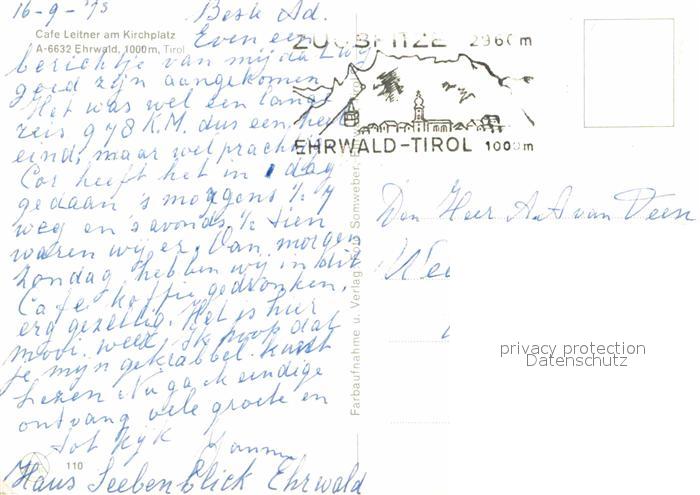 16-9-'73 Beste Ad.
Cafe Leitner am Kirchplatz
A-6632 Ehrwald, 1000 m, Tirol
Even een
berichtje van mij dat wij
goed zijn aangekomen
Het was wel een lange
reis 978 K.M. dus een heel
eind, maar wel prachtig
Cor heeft het in 1 dag
gedaan 's morgens ½ 7
weg en 's avonds ½ tien
waren wij er. Van morgen
Zondag hebben wij in dit
Café koffie gedronken,
erg gezellig. Het is hier
mooi weer. Ik hoop dat
je mijn gekrabbel kunt
lezen. Nu ga ik eindige
ontvang vele groete en
tot kijk
Haus Seebenblick Ehrwald
110
ZUGSPITZE 2960 m
EHRWALD-TIROL 1000m
Farbaufnahme u. Verlag Somweber,
Den Heer A.A. van Veen
privacy protection
Datenschutz